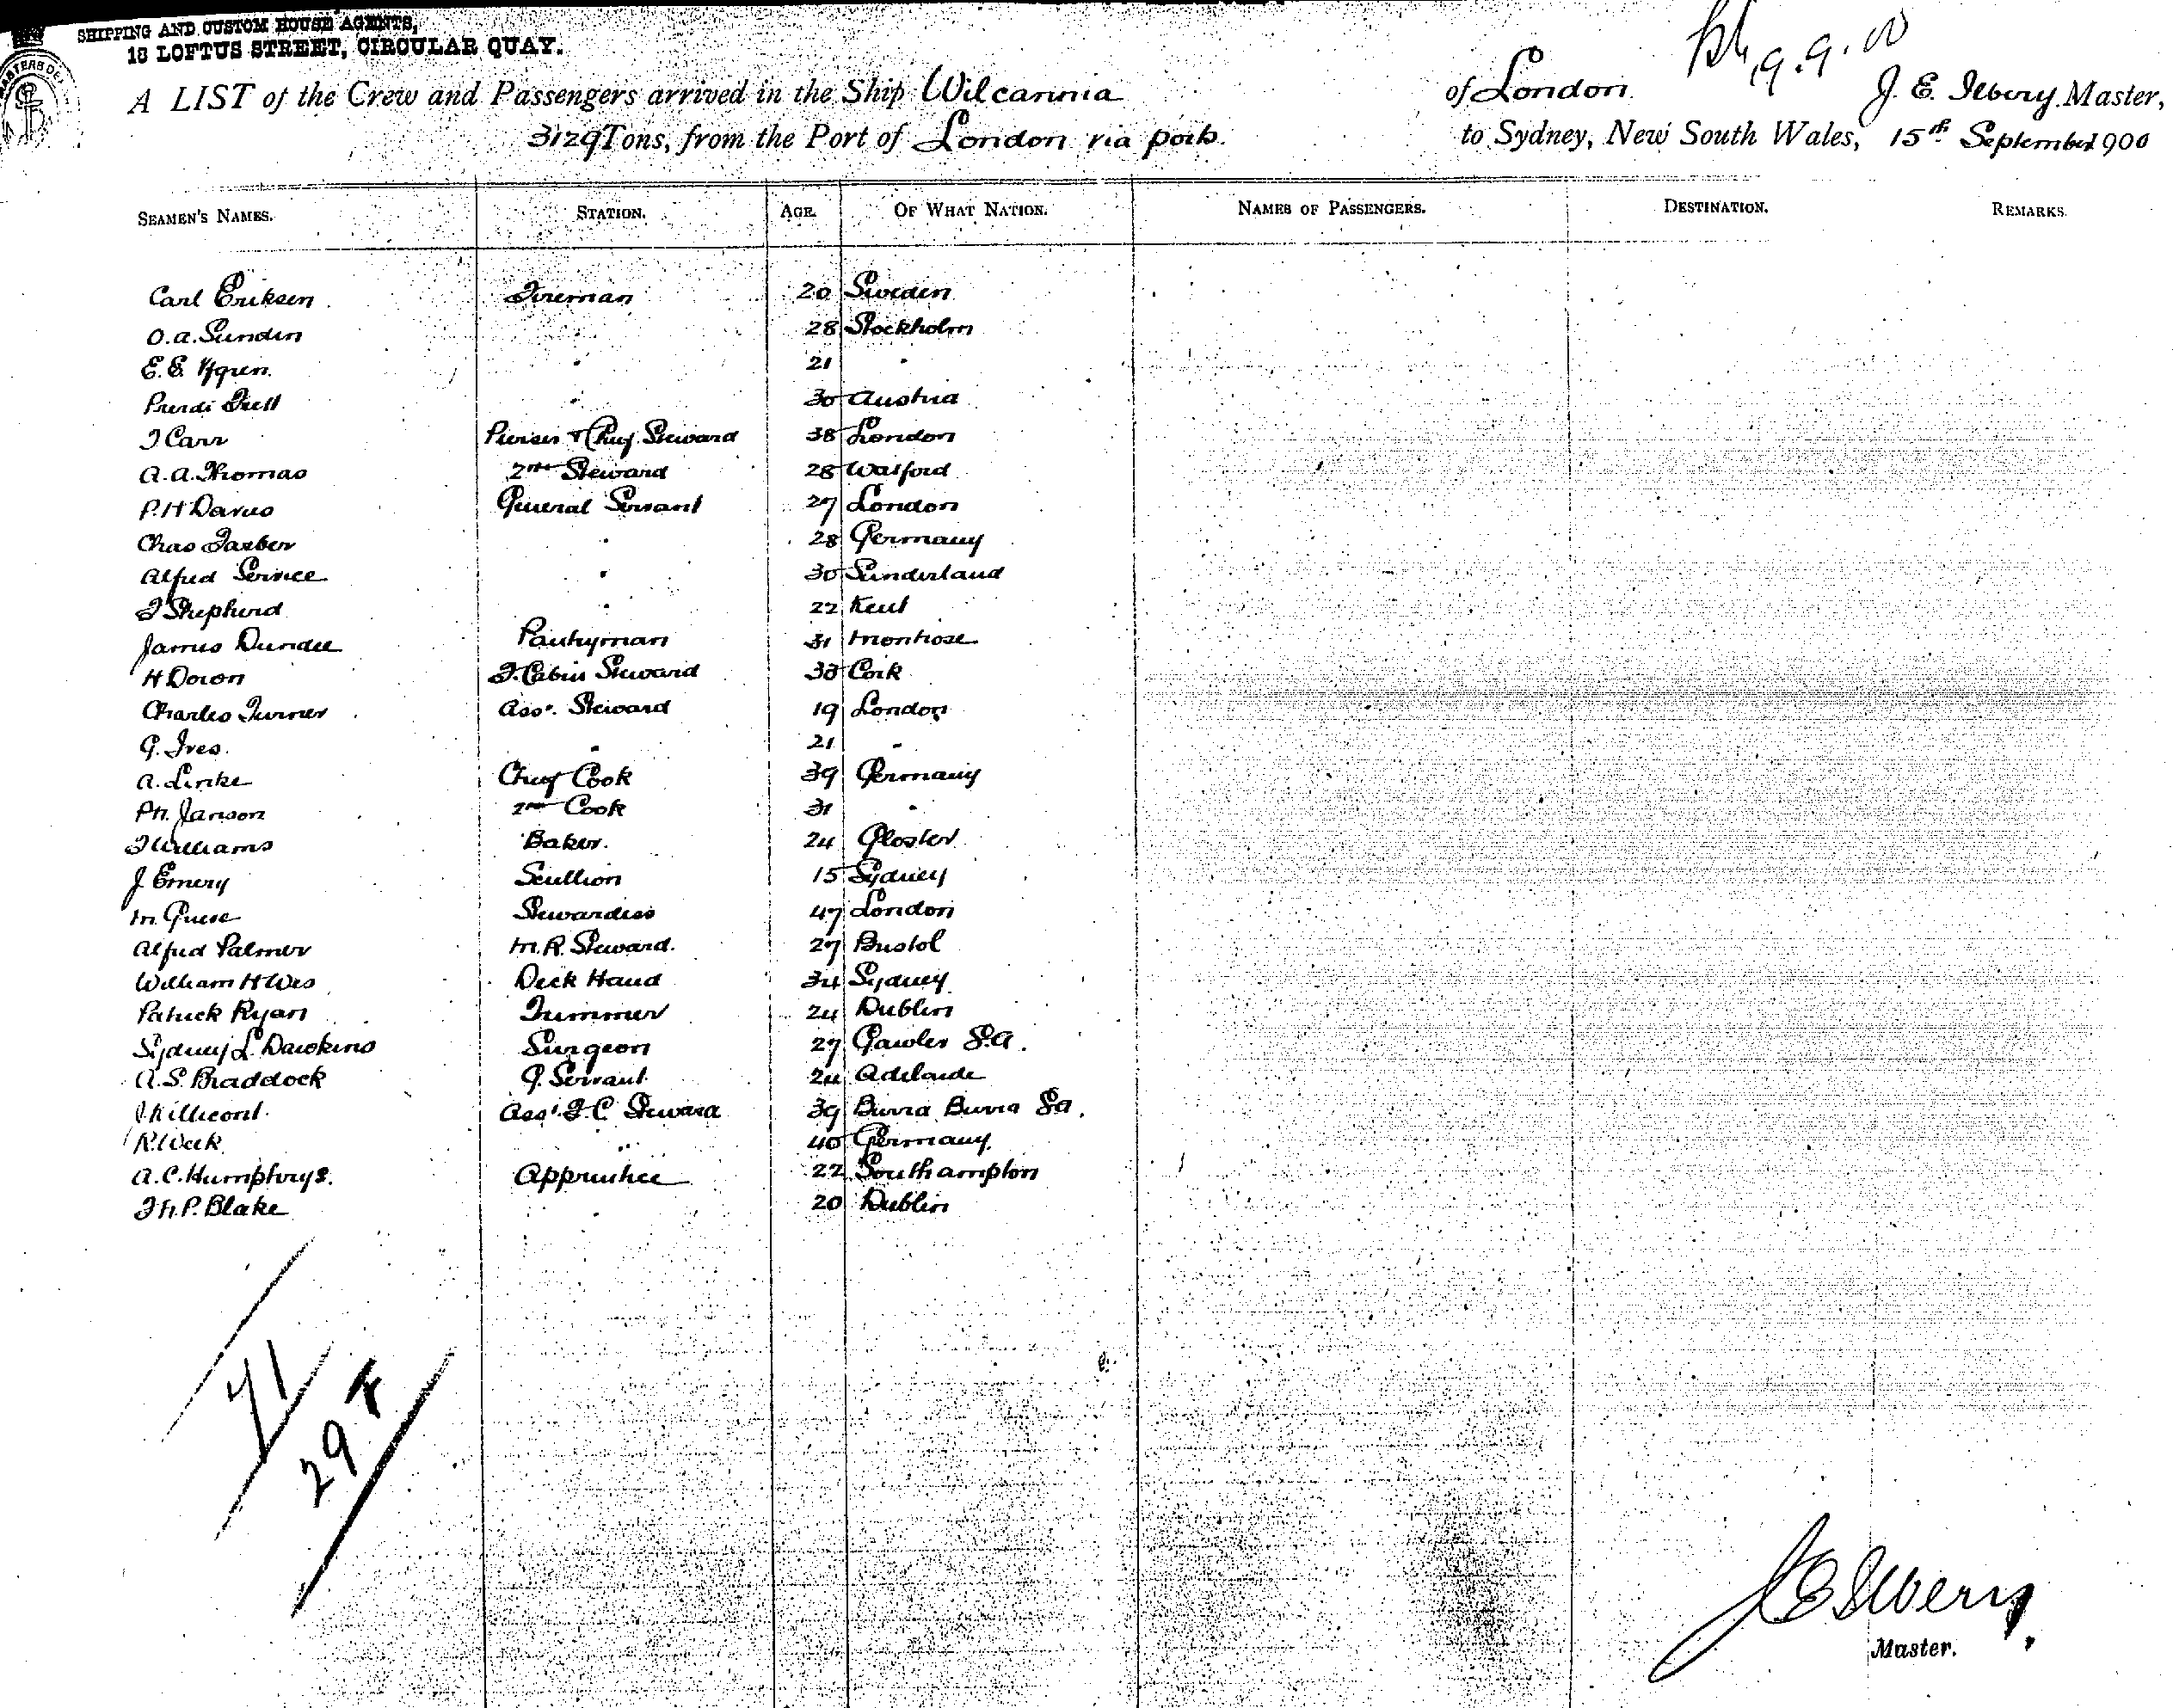 SHIPPING AND CUSTOM HOUSE AGENTS,
18 LOFTUS STREET, CIRCULAR QUAY.
9.9.00
A LIST of the Crew and Passengers arrived in the Ship Wilcannia of London J. E. Ilbery Master,
3129 Tons, from the Port of London via ports to Sydney, New South Wales, 15th September 1900
SEAMEN'S NAMES. STATION. AGE. OF WHAT NATION. NAMES OF PASSENGERS. DESTINATION. REMARKS.
Carl Eriksen Fireman 20 Sweden
O.A. Sundin 28 Stockholm
E.E. 21 "
30 Austria
J Carr Purser & Chief Steward 38 London
A.A. Thomas 2nd Steward 28 Watford
P.H Davies General Servant 27 London
Chas Farber " 28 Germany
Alfred Service " 30 Sunderland
J Shepherd " 22 Kent
James Dundee Pantryman 31 Montrose
H Doron F. Cabin Steward 38 Cork
Charles Turner Asst. Steward 19 London
G. Ives " 21 "
A. Linke Chief Cook 39 Germany
Ph. Janson 2nd Cook 31 "
J Williams Baker 24 Gloster
J Emery Scullion 15 Sydney
M. Stewardess 47 London
Alfred Palmer M.R. Steward. 27 Bristol
William H Deck Hand 34 Sydney
Patrick Ryan Trimmer 24 Dublin
Sydney L. Dawkins Surgeon 27 Gawler S.A.
A.S. Braddock G. Servant 24 Adelaide
J. Killicoat. Asst. F.C Steward 39 Burra Burra S.A.
R. Week " 40 Germany.
A.C. Humphrys. Apprentice 22 Southampton
J.H.P. Blake " 20 Dublin
71
29
J E Ilbery
Master.